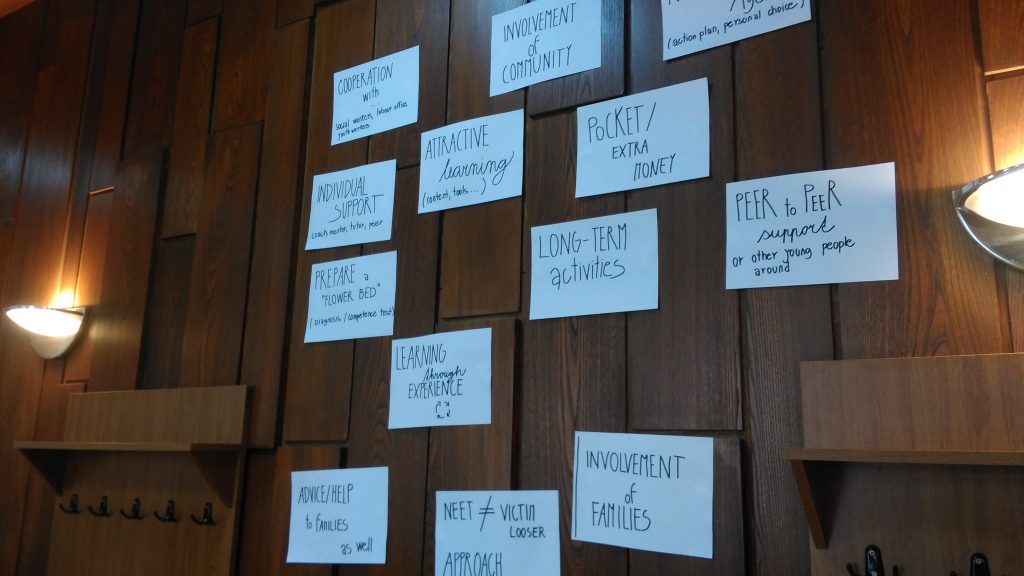 INVOLVEMENT
of
COMMUNITY
(action plan, personal choice)
COOPERATION
with...
social workers, labour office
youthworkers
ATTRACTIVE
learning
(content, tools....)
POCKET/
EXTRA
MONEY
INDIVIDUAL
SUPPORT
coach, mentor, tutor, peer
PEER to PEER
support
or other young people
around
LONG-TERM
activities
PREPARE a
"FLOWER BED"
(Diagnosis / competence test)
LEARNING
through
EXPERIENCE
INVOLVEMENT
of
FAMILIES
ADVICE/HELP
to FAMILIES
as well
NEET ≠ VICTIM
LOOSER
APPROACH